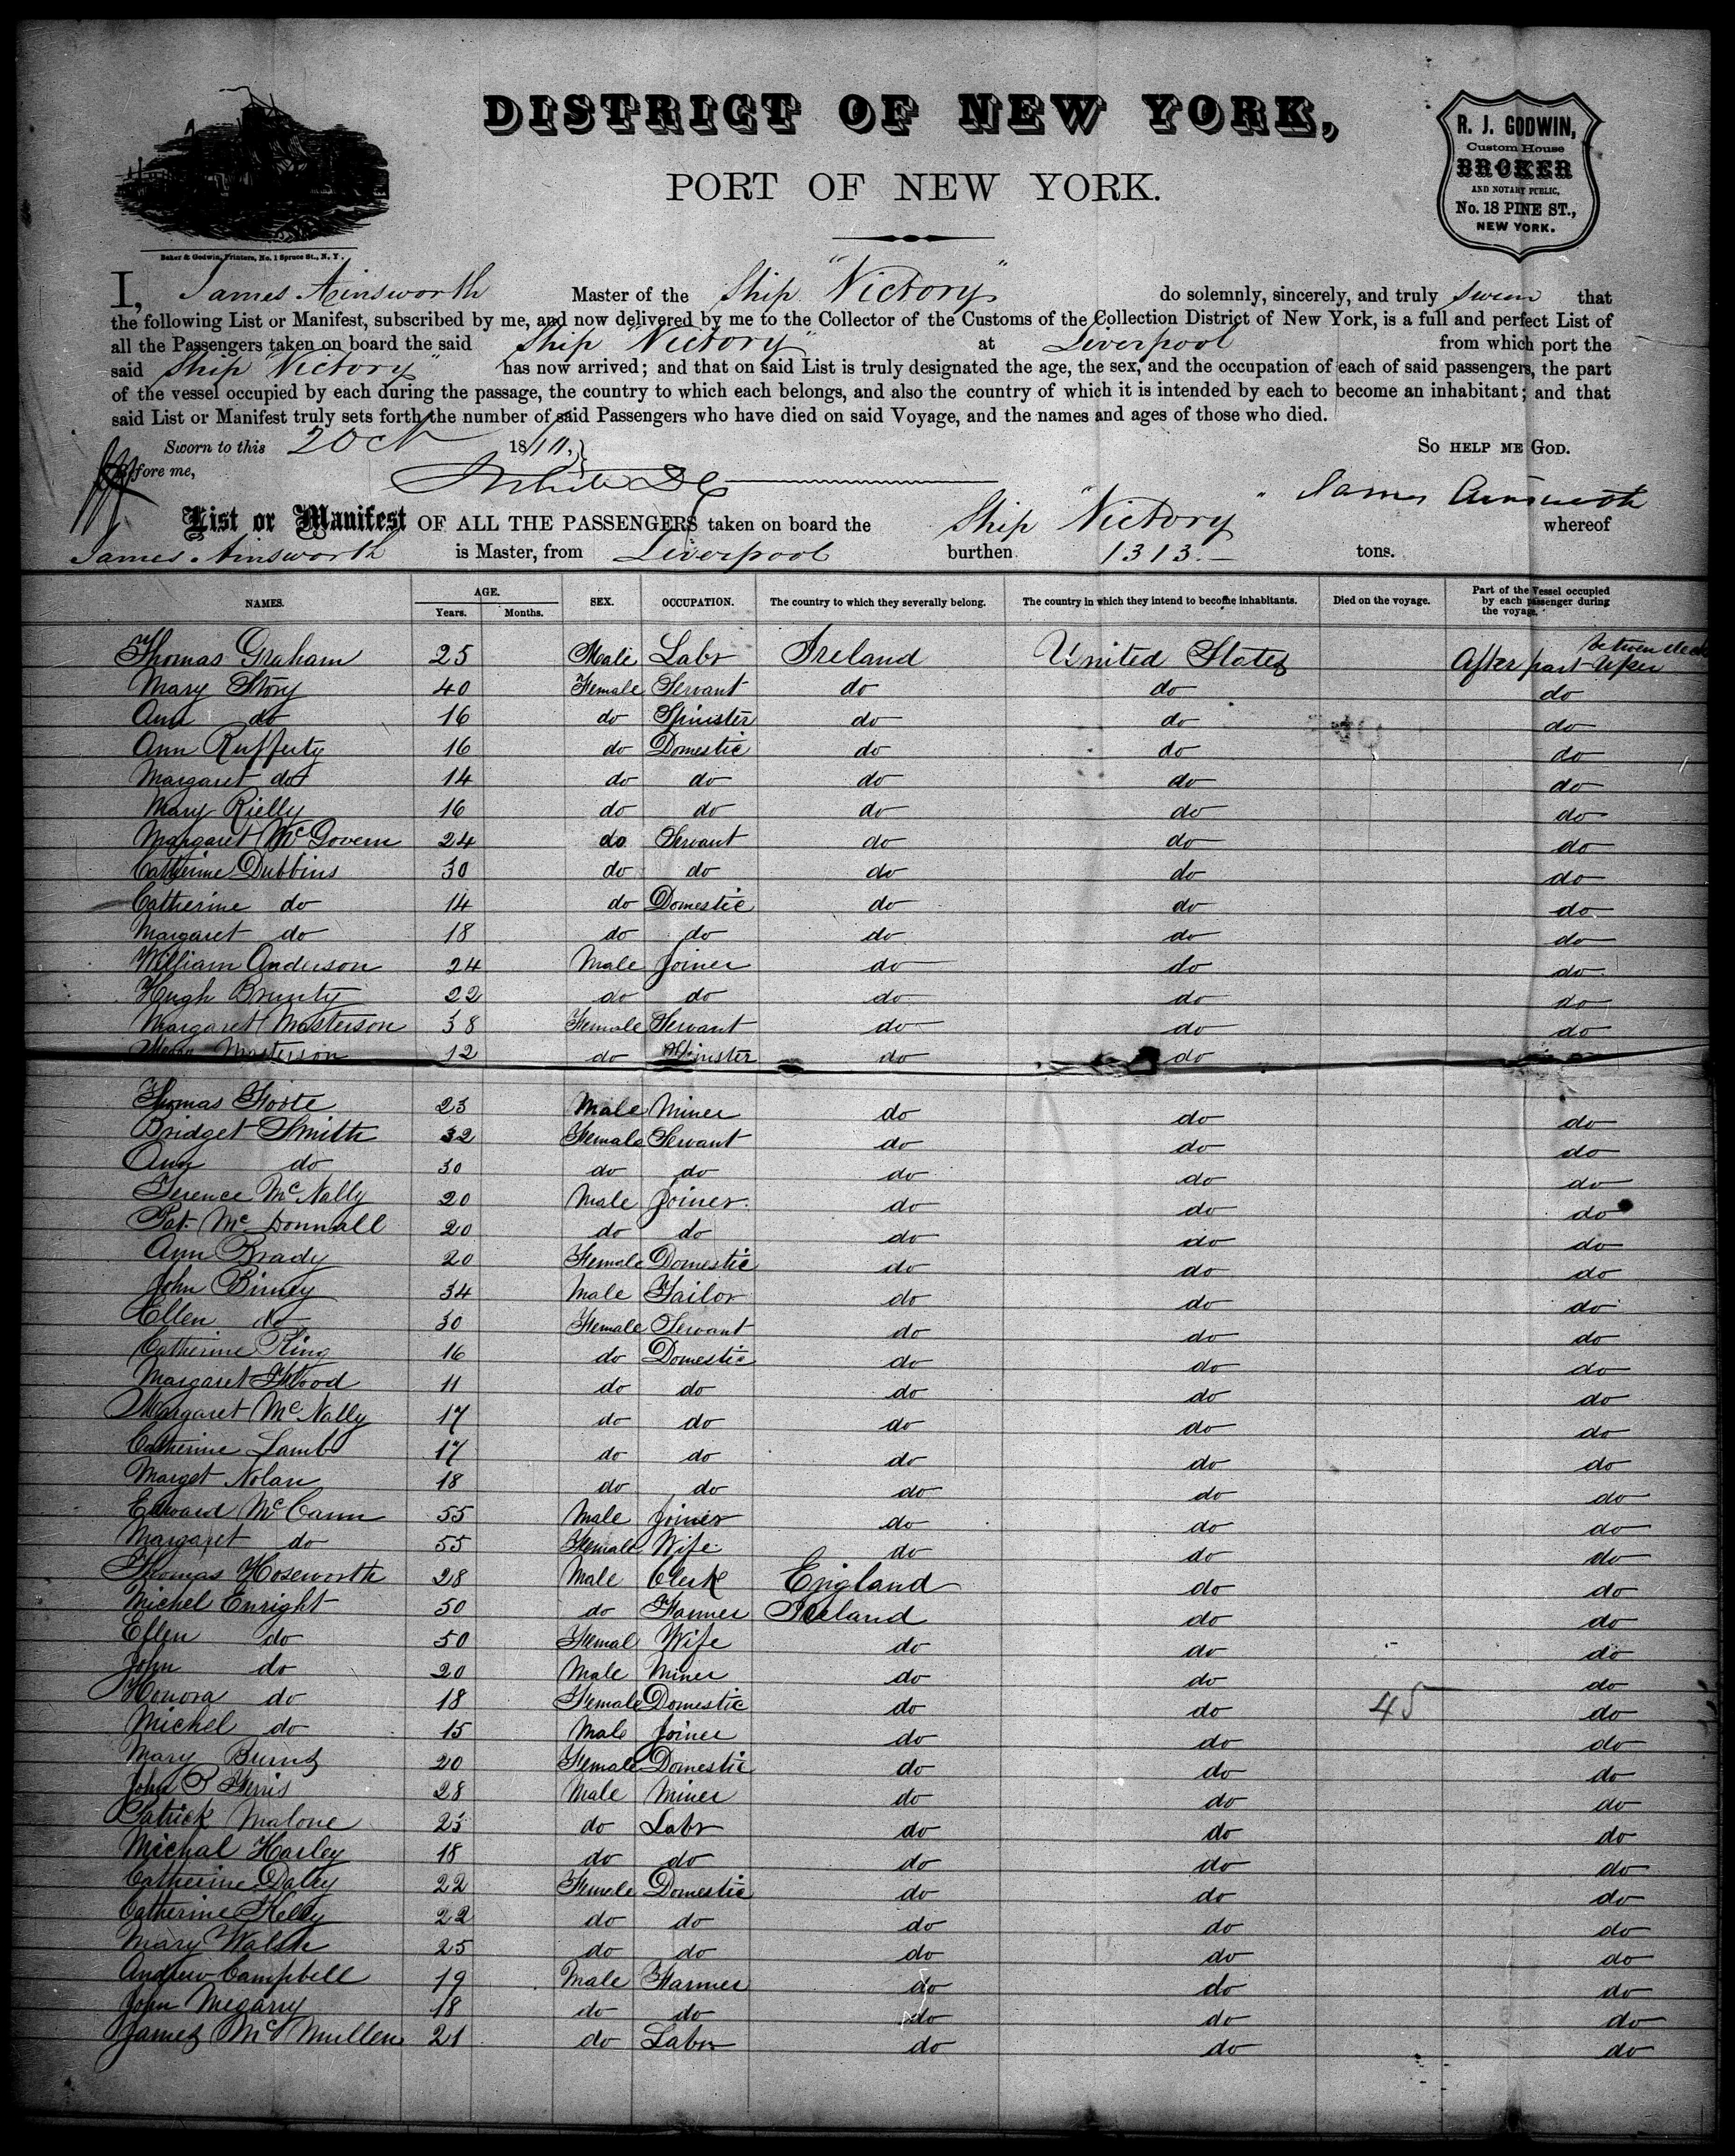 DISTRICT OF NEW YORK,
PORT OF NEW YORK.
R. J. GODWIN,
Custom House
BROKER
AND NOTARY PUBLIC,
No. 18 PINE ST.,
NEW YORK.
Baker & Godwin, Printers, No. 1 Spruce St., N. Y.
I, James Ainsworth Master of the Ship "Victory" do solemnly, sincerely, and truly swear that
the following List or Manifest, subscribed by me, and now delivered by me to the Collector of the Customs of the Collection District of New York, is a full and perfect List of
all the Passengers taken on board the said Ship "Victory" at Liverpool from which port the
said Ship "Victory" has now arrived; and that on said List is truly designated the age, the sex, and the occupation of each of said passengers, the part
of the vessel occupied by each during the passage, the country to which each belongs, and also the country of which it is intended by each to become an inhabitant; and that
said List or Manifest truly sets forth the number of said Passengers who have died on said Voyage, and the names and ages of those who died.
Sworn to this 2 Oct 18 So help me God.
Before me,
James Ainsworth
List or Manifest OF ALL THE PASSENGERS taken on board the Ship "Victory" whereof
James Ainsworth is Master, from Liverpool burthen 1313.- tons.
NAMES. AGE. Years. Months. SEX. OCCUPATION. The country to which they severally belong. The country in which they intend to become inhabitants. Died on the voyage. Part of the Vessel occupied by each passenger during the voyage.
Thomas Graham 25 Male Labr Ireland United States After part Upper between deck
Mary Story 40 Female Servant do do do
Ann do 16 do Spinister do do do
Ann Rufferty 16 do Domestic do do do
Margaret do 14 do do do do do
Mary Rielly 16 do do do do do
Margaret McGovern 24 do Servant do do do
Catherine Dubbins 30 do do do do do
Catherine do 14 do Domestic do do do
Margaret do 18 do do do do do
William Anderson 24 Male Joiner do do do
Hugh Brunty 22 do do do do do
Margaret Masterson 38 Female Servant do do do
Masterson 12 do Spinister do do
Thomas Foste 23 Male Miner do do do
Bridget Smith 32 Female Servant do do do
Ann do 30 do do do do do
Terence McNally 20 Male Joiner do do do
Pat. McDonnall 20 do do do do do
Ann Brady 20 Female Domestic do do do
John Binney 34 Male Tailor do do do
Ellen do 30 Female Servant do do do
Catherine King 16 do Domestic do do do
Margaret Flood 11 do do do do do
Margaret McNally 17 do do do do do
Catherine Lamb 17 do do do do do
Marget Nolan 18 do do do do do
Edward McCann 55 Male Joiner do do do
Margaret do 55 Female Wife do do do
Thomas Hoseworth 28 Male Clerk England do do
Michel Enright 50 do Farmer Ireland do do
Ellen do 50 Femal Wife do do do
John do 20 Male Miner do do do
Honora do 18 Female Domestic do do 45 do
Michel do 15 Male Joiner do do do
Mary Burns 20 Female Domestic do do do
John P Ferris 28 Male Miner do do do
Patrick Malone 23 do Labr do do do
Michal Harley 18 do do do do do
Catherine Daley 22 Female Domestic do do do
Catherine Kelly 22 do do do do do
Mary Walsh 25 do do do do do
Andrew Campbell 19 Male Farmer do do do
John Megarry 18 do do do do do
James McMullen 21 do Labr do do do